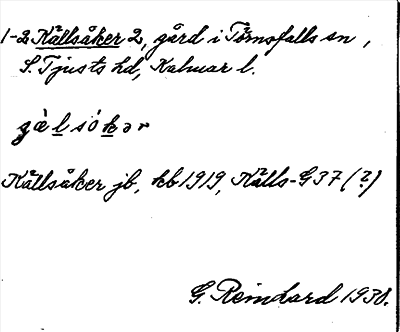 1-2 Källsåker 2, gård i Törnsfalls sn,
S. Tjusts hd, Kalmar l.
gὰlsókər
Källsåker jb, kb 1919, Källs- G37 (?)
G. Reinhard 1930.